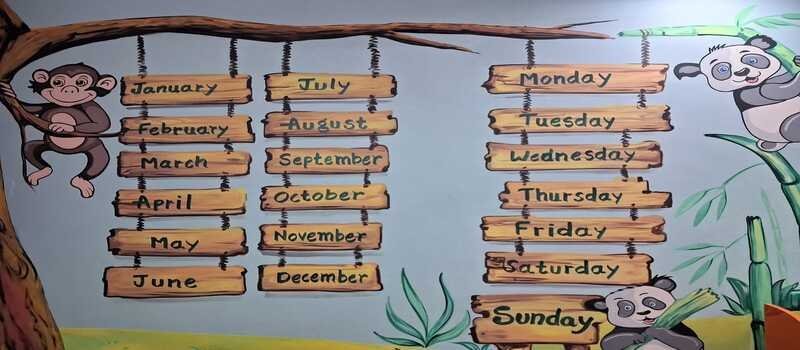 January
February
March
April
May
June
July
August
September
October
November
December
Monday
Tuesday
Wednesday
Thursday
Friday
Saturday
Sunday